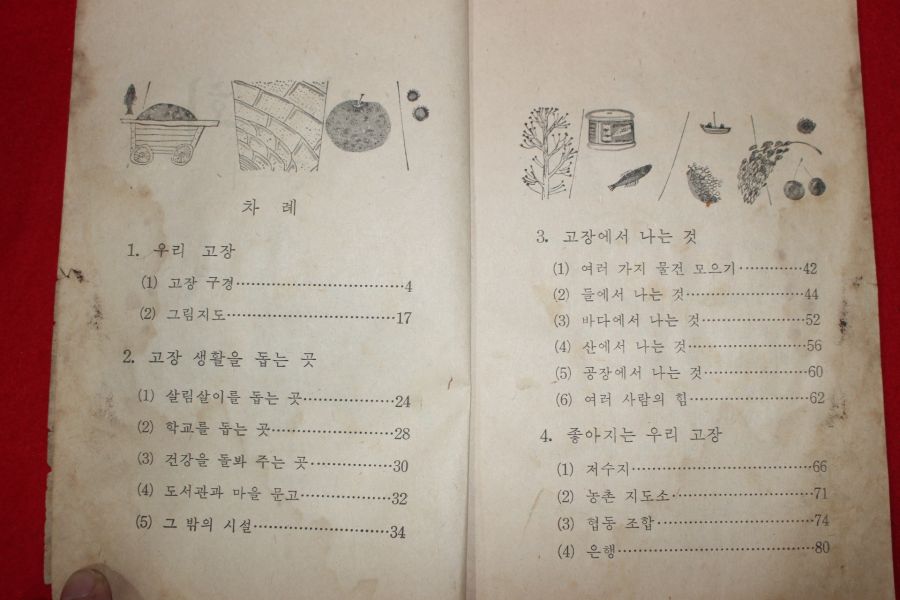 차 례
1. 우리 고장
(1) 고장 구경……………………………4
(2) 그림지도……………………………17
2. 고장 생활을 돕는 곳
(1) 살림살이를 돕는 곳…………………24
(2) 학교를 돕는 곳……………………28
(3) 건강을 돌봐 주는 곳………………30
(4) 도서관과 마을 문고…………………32
(5) 그 밖의 시설………………………34
3. 고장에서 나는 것
(1) 여러 가지 물건 모으기…………42
(2) 들에서 나는 것……………………44
(3) 바다에서 나는 것…………………52
(4) 산에서 나는 것……………………56
(5) 공장에서 나는 것…………………60
(6) 여러 사람의 힘……………………62
4. 좋아지는 우리 고장
(1) 저수지………………………………66
(2) 농촌 지도소…………………………71
(3) 협동 조합……………………………74
(4) 은행…………………………………80